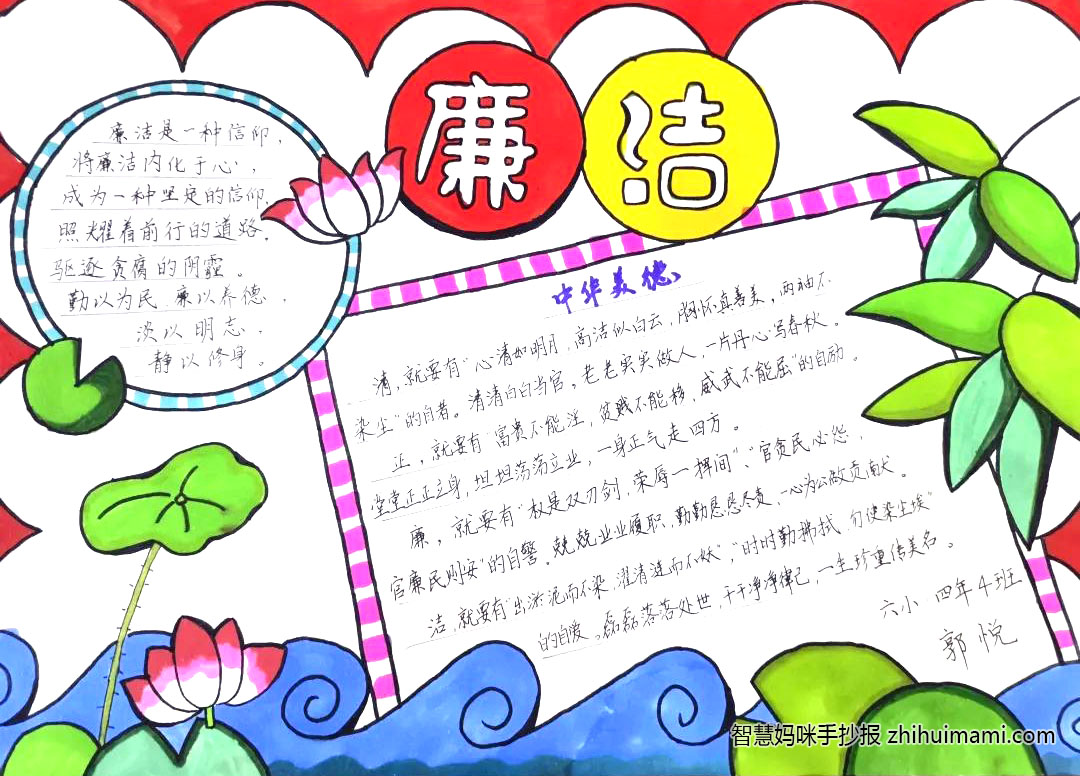 廉洁
廉洁是一种信仰，
将廉洁内化于心，
成为一种坚定的信仰，
照耀着前行的道路。
驱逐贪腐的阴霾。
勤以为民 廉以养德，
淡以明志，
静以修身。
中华美德
清，就要有“心清如明月，高洁似白云，胸怀真善美，两袖不
染尘”的自省。清清白白当官，老老实实做人，一片丹心写春秋。
正，就要有“富贵不能淫，贫贱不能移，威武不能屈”的自励。
堂堂正正立身，坦坦荡荡立业，一身正气走四方。
廉，就要有“权是双刃剑，荣辱一挥间”、“官贪民必怨，
官廉民则安”的自警。兢兢业业履职，勤勤恳恳尽责，一心为公做贡献。
洁，就要有“出淤泥而不染，濯清涟而不妖”，“时时勤拂拭，勿使染尘埃”
的自爱。磊磊落落处世，干干净净律己，一生珍重传美名。
六小 四年4班
郭悦
智慧妈咪手抄报 zhihuimami.com